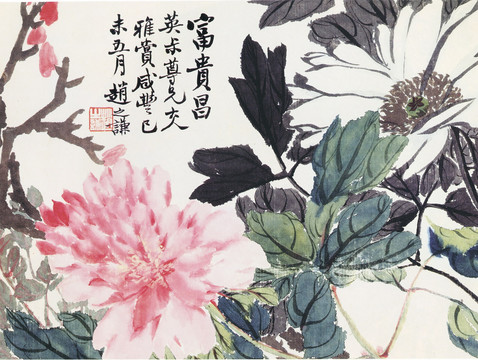 富貴昌
英未尊兄大
雅賞咸豐己
未五月趙之謙